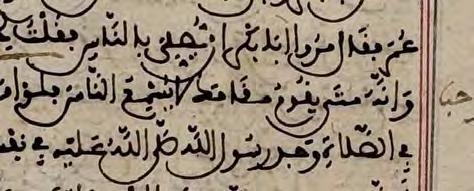 عمر فقال مروا ابا بكر ان يصلي بالناس فقلت
وانه متى يقوم مقامك لا يسمع الناس فلو امر
في الصلاة وجد رسول الله صلى الله عليه في نفس